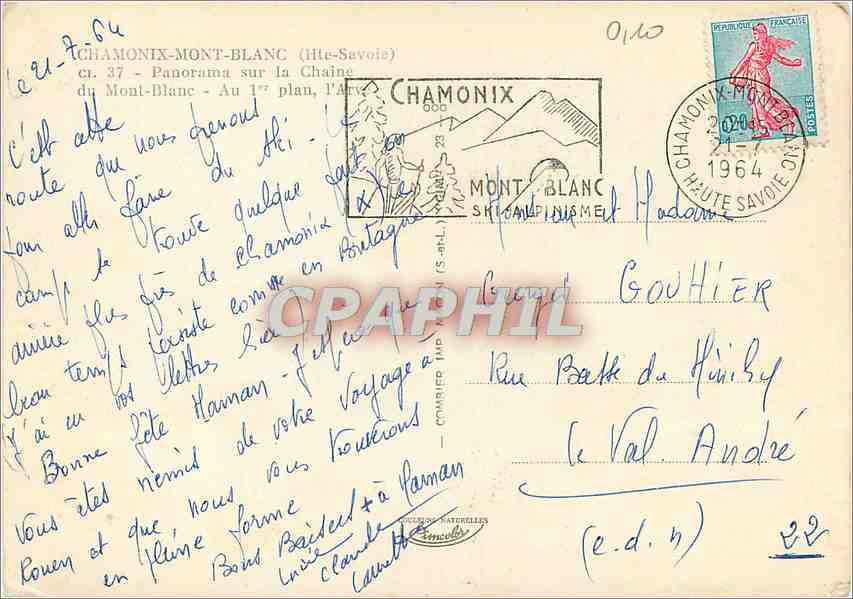 le 21-7-64
CHAMONIX-MONT-BLANC (Hte-Savoie)
CI. 37 - Panorama sur la Chaine
du Mont-Blanc - Au 1er plan, l'Arve
C'est cette
route que nous prenons
pour aller faire du ski - Le
camp se trouve quelque part
arrière plus près de chamonix (X)
beau temps existe comme en Bretagne
J'ai eu vos lettres hier
Bonne fête Maman - J'espère que
Vous êtes remis de votre voyage à
Rouen et que nous vous trouverons
en pleine forme
Bons Baisers + à Maman
Claude
CHAMONIX
MONT BLANC
SKI-ALPINISME
REPUBLIQUE FRANÇAISE
POSTES
CHAMONIX-MONT-BLANC
1964
HAUTE SAVOIE
0,10
Monsieur et Madame
Georges GOUHIER
Rue Basse du Minihy
Le Val. André
(c.d.n) 22
COMBIER IMP. MACON (S.-et-L.)
COULEURS NATURELLES
Cimcolor
CPAPHIL